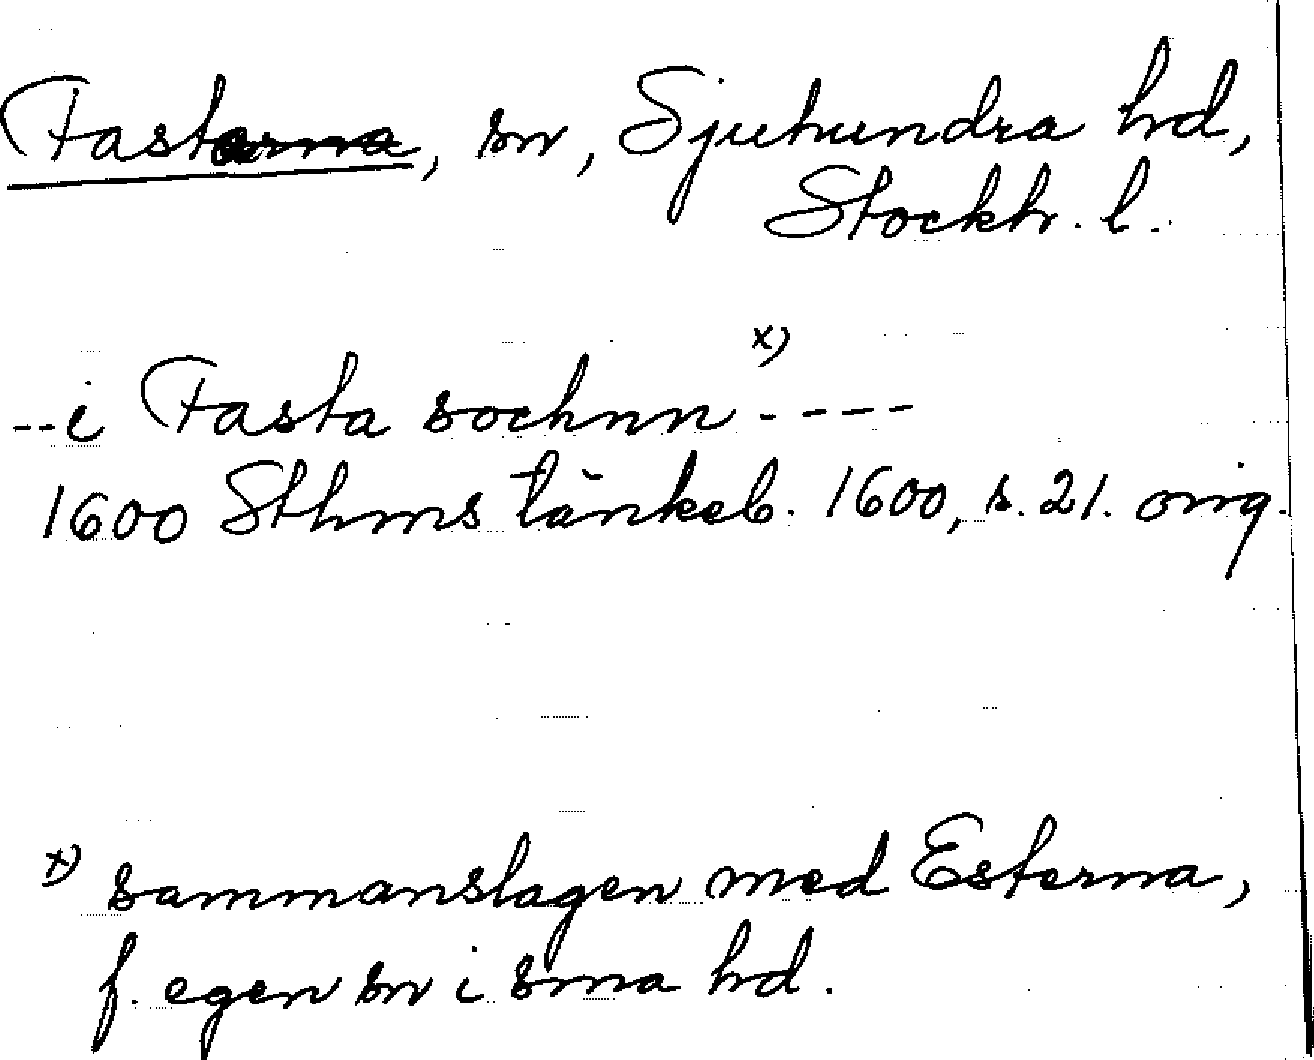 Fasterna, sn, Sjuhundra hd,
Stockh. l.
--i Fasta sochnn x) ----
1600 Sthms tänkeb. 1600, s. 21. orig.
x) sammanslagen med Esterna,
f. egen sn i sma hd.